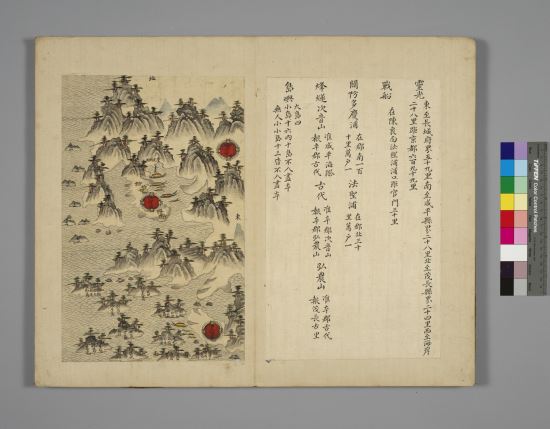 靈光
東至長城府界五十九里南至咸平縣界二十八里北至茂長縣界二十四里西至海岸
二十八里距京都六百九十九里
戰船
在陳良面法聖浦浦口距官門三十里
關防多慶浦 在郡南一百
十里萬戶一
法聖浦 在郡北三十
里萬戶一
烽燧次音山 准咸平海際
報本郡古代
古代 准本郡次音山
報本郡弘農山
弘農山 准本郡古代
報茂長古里
島嶼
大島四
小島十六內十島不入畫本
無人小小島十二皆不入畫本
北
東
TIFFEN Color Control Patches